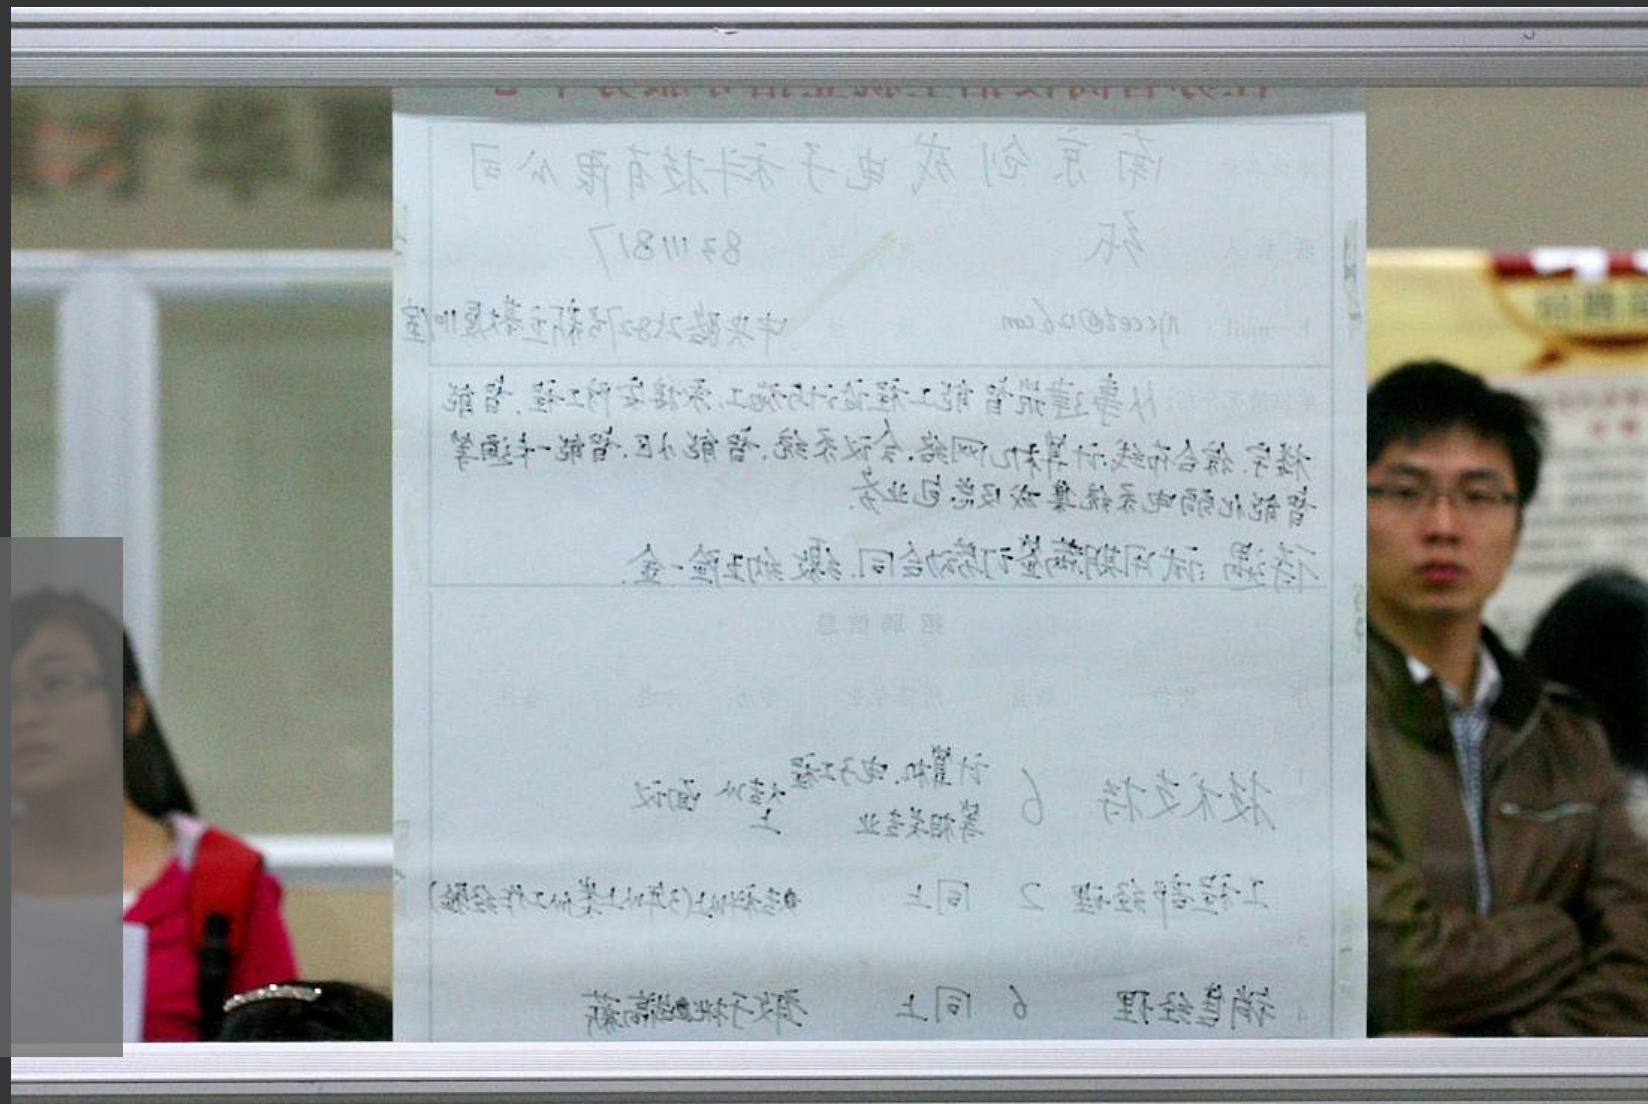 南京创成电子科技有限公司
联系人 张 83111817
E-mail njccet@126.com 中央路258-27号新立基大厦1101室
从事建筑智能工程设计与施工,承接安防工程、智能
楼宇、综合布线、计算机网络、会议系统、智能小区、智能一卡通等
智能化弱电系统集成及总包业务.
待遇:试用期满签订劳动合同,缴纳五险一金.
招聘信息
技术支持 6 计算机、电子工程 大专以上 面议
等相关专业
3
工程部经理 2 同上 本科以上(3年以上类似工作经验)
4 销售经理 6 同上 敢于挑战高薪